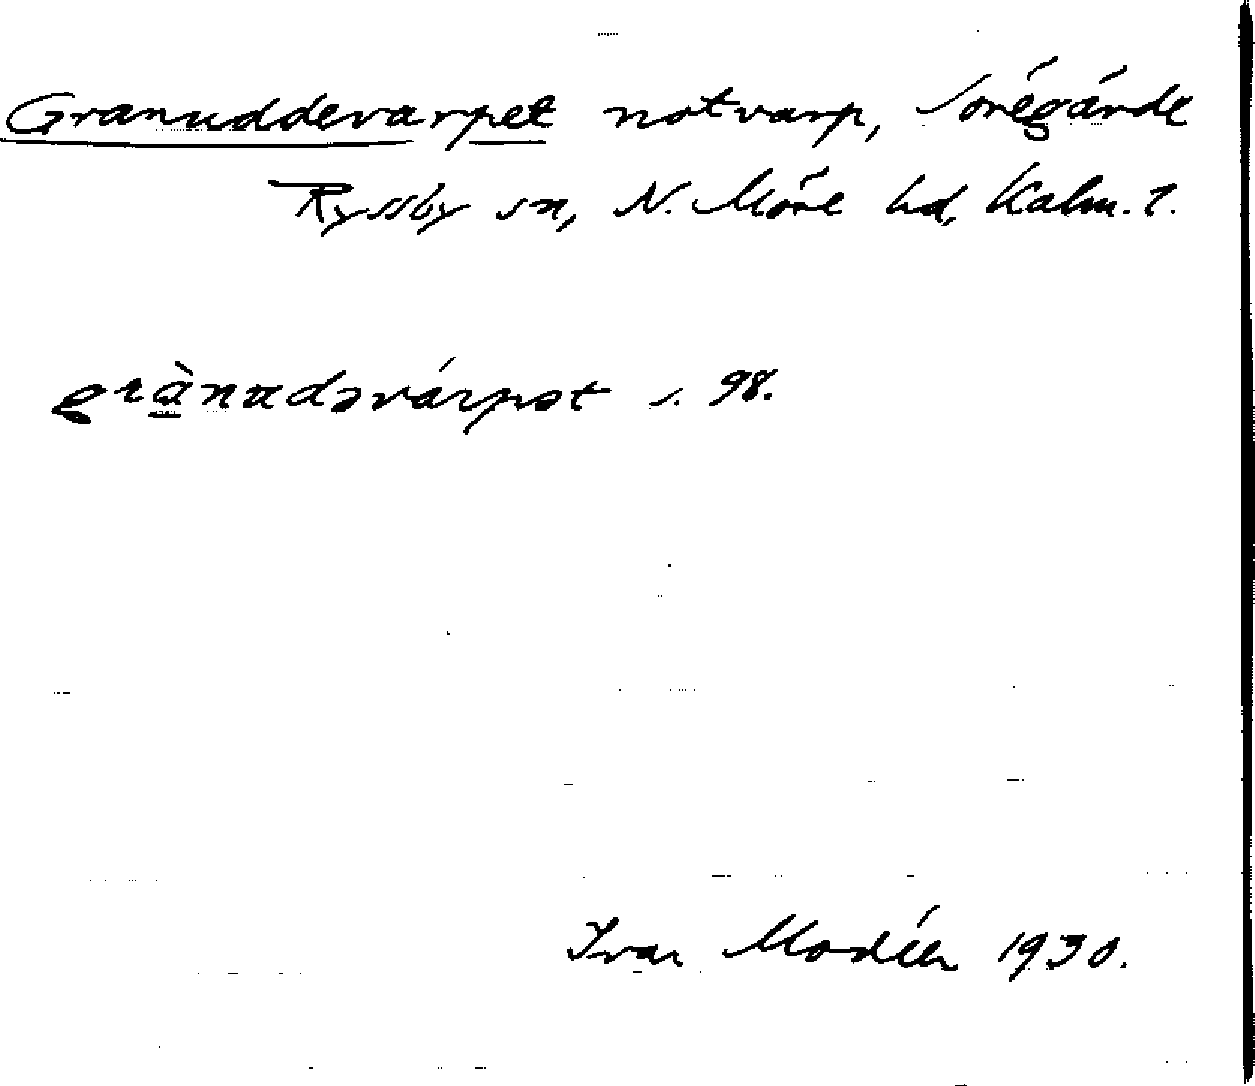 Granuddevarpet notvarp, Sörégärde
Ryssby sn, N. Möre hd, Kalm. l.
grànudəvárpət s. 98.
Ivar Modéer 1930.